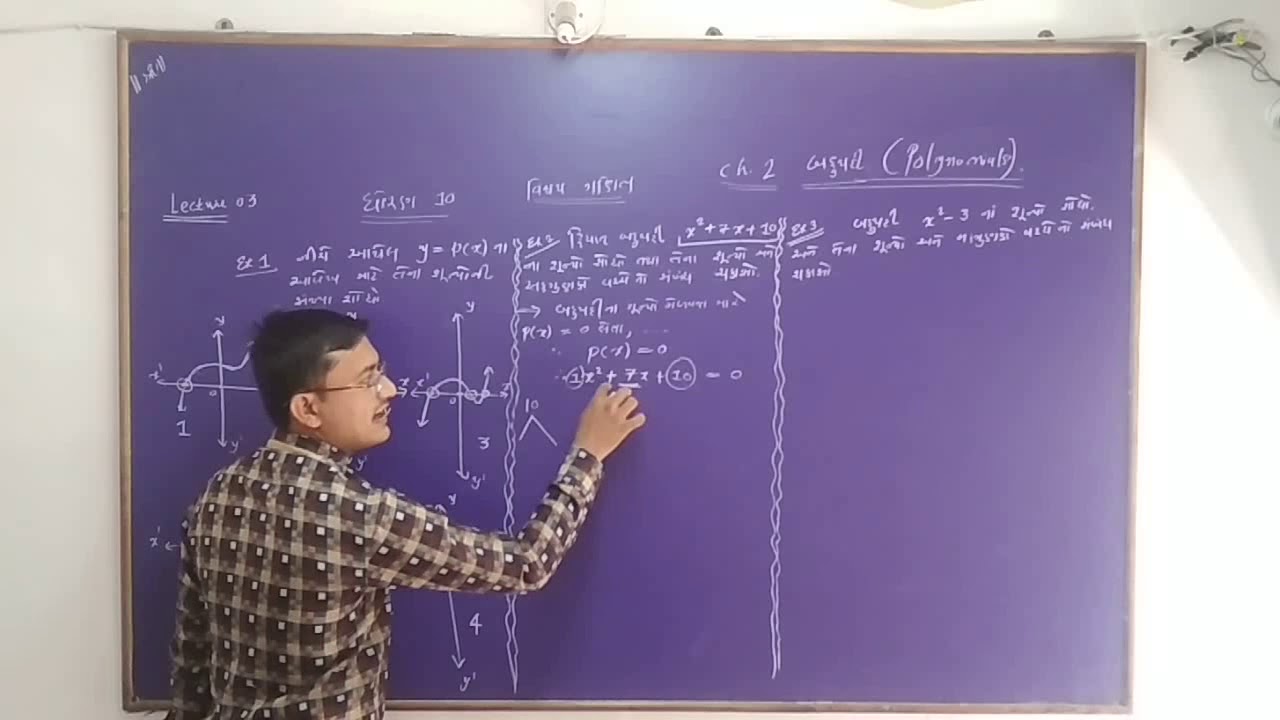 ॥ શ્રી ॥
Lecture 03
ધોરણ 10
વિષય ગણિત
ch. 2 બહુપદી (Polynomials).
Ex 1 નીચે આપેલ y = P(x) ના
આલેખ માટે તેના શૂન્યોની
સંખ્યા શોધો
y
x'
0
1
y'
x
x'
y
0
3
y'
x'
y
4
y'
Ex 2 દ્વિઘાત બહુપદી x² + 7x + 10
ના શૂન્યો શોધો તથા તેના શૂન્યો અને
સહગુણકો વચ્ચેનો સંબંધ ચકાસો.
→ બહુપદીના શૂન્યો મેળવવા માટે
P(x) = 0 લેતા,
∴ P(x) = 0
∴ 1x² + 7x + 10 = 0
10
Ex 3 બહુપદી x² - 3 નાં શૂન્યો શોધો.
અને તેના શૂન્યો અને સહગુણકો વચ્ચેનો સંબંધ
ચકાસો